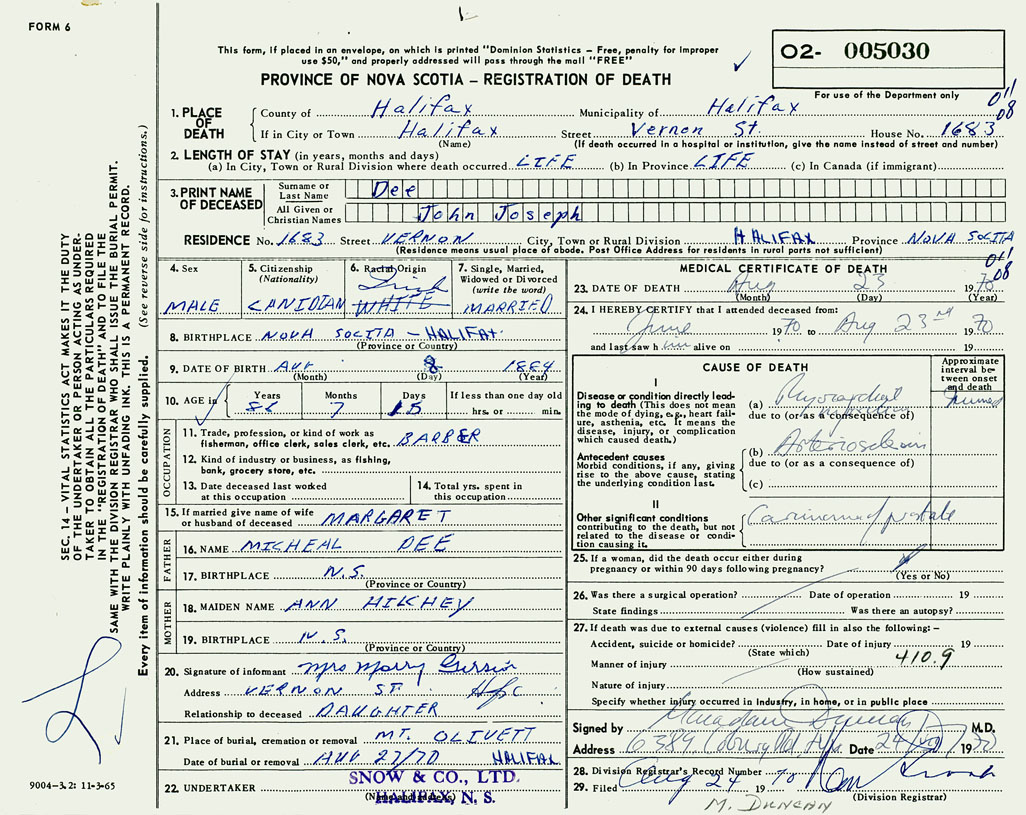 FORM 6
This form, if placed in an envelope, on which is printed "Dominion Statistics – Free, penalty for improper
use $50," and properly addressed will pass through the mail "FREE"
PROVINCE OF NOVA SCOTIA – REGISTRATION OF DEATH
O2- 005030
For use of the Department only
011
08
1. PLACE OF DEATH
County of Halifax Municipality of Halifax
If in City or Town Halifax Street Vernon St. House No. 1683
(Name) (If death occurred in a hospital or institution, give the name instead of street and number)
2. LENGTH OF STAY (in years, months and days)
(a) In City, Town or Rural Division where death occurred LIFE (b) In Province LIFE (c) In Canada (if immigrant)
3. PRINT NAME OF DECEASED
Surname or Last Name Dee
All Given or Christian Names John Joseph
RESIDENCE No. 1683 Street VERNON City, Town or Rural Division HALIFAX Province NOVA SOCTIA
(Residence means usual place of abode. Post Office Address for residents in rural parts not sufficient)
4. Sex MALE
5. Citizenship (Nationality) CANIDIAN
6. Racial Origin Irish WHITE
7. Single, Married, Widowed or Divorced (write the word) MARRIED
8. BIRTHPLACE NOVA SOCTIA – HALIFAX
(Province or Country)
9. DATE OF BIRTH 8 1884
(Month) (Day) (Year)
10. AGE in Years 86 Months 7 Days 15 If less than one day old
hrs. or min.
OCCUPATION
11. Trade, profession, or kind of work as BARBER
fisherman, office clerk, sales clerk, etc.
12. Kind of industry or business, as fishing,
bank, grocery store, etc.
13. Date deceased last worked at this occupation
14. Total yrs. spent in this occupation
15. If married give name of wife or husband of deceased MARGARET
FATHER
16. NAME MICHEAL DEE
17. BIRTHPLACE N.S.
(Province or Country)
MOTHER
18. MAIDEN NAME ANN HILCHEY
19. BIRTHPLACE N.S.
(Province or Country)
20. Signature of informant Mrs
Address VERNON ST Hfx
Relationship to deceased DAUGHTER
21. Place of burial, cremation or removal MT. OLIVETT
Date of burial or removal AUG 27/70 HALIFAX
22. UNDERTAKER SNOW & CO., LTD.
HALIFAX, N. S.
(Name and address)
011
08
MEDICAL CERTIFICATE OF DEATH
23. DATE OF DEATH Aug 23 1970
(Month) (Day) (Year)
24. I HEREBY CERTIFY that I attended deceased from:
June 1970 to Aug 23rd 1970
and last saw him alive on 19
CAUSE OF DEATH
Approximate interval between onset and death
I
Disease or condition directly leading to death (This does not mean the mode of dying, e.g., heart failure, asthenia, etc. It means the disease, injury, or complication which caused death.)
(a) Myocardial
due to (or as a consequence of)
Antecedent causes
Morbid conditions, if any, giving rise to the above cause, stating the underlying condition last.
(b) Arteriosclerosis
due to (or as a consequence of)
(c)
II
Other significant conditions
contributing to the death, but not related to the disease or condition causing it.
Carcinoma prostate
25. If a woman, did the death occur either during
pregnancy or within 90 days following pregnancy?
(Yes or No)
26. Was there a surgical operation? Date of operation 19
State findings Was there an autopsy?
27. If death was due to external causes (violence) fill in also the following: –
Accident, suicide or homicide? Date of injury 19
(State which)
410.9
Manner of injury
(How sustained)
Nature of injury
Specify whether injury occurred in Industry, in home, or in public place
Signed by M.D.
Address 6389 Coburg Rd Hfx. Date 24 1970
28. Division Registrar's Record Number
29. Filed Aug 24 1970
(Division Registrar)
M. DUNCAN
SEC. 14 – VITAL STATISTICS ACT MAKES IT THE DUTY
OF THE UNDERTAKER OR PERSON ACTING AS UNDER-
TAKER TO OBTAIN ALL THE PARTICULARS REQUIRED
IN THE "REGISTRATION OF DEATH" AND TO FILE THE
SAME WITH THE DIVISION REGISTRAR WHO SHALL ISSUE THE BURIAL PERMIT.
WRITE PLAINLY WITH UNFADING INK. THIS IS A PERMANENT RECORD.
Every item of information should be carefully supplied. (See reverse side for instructions.)
9004–3.2: 11-3-65